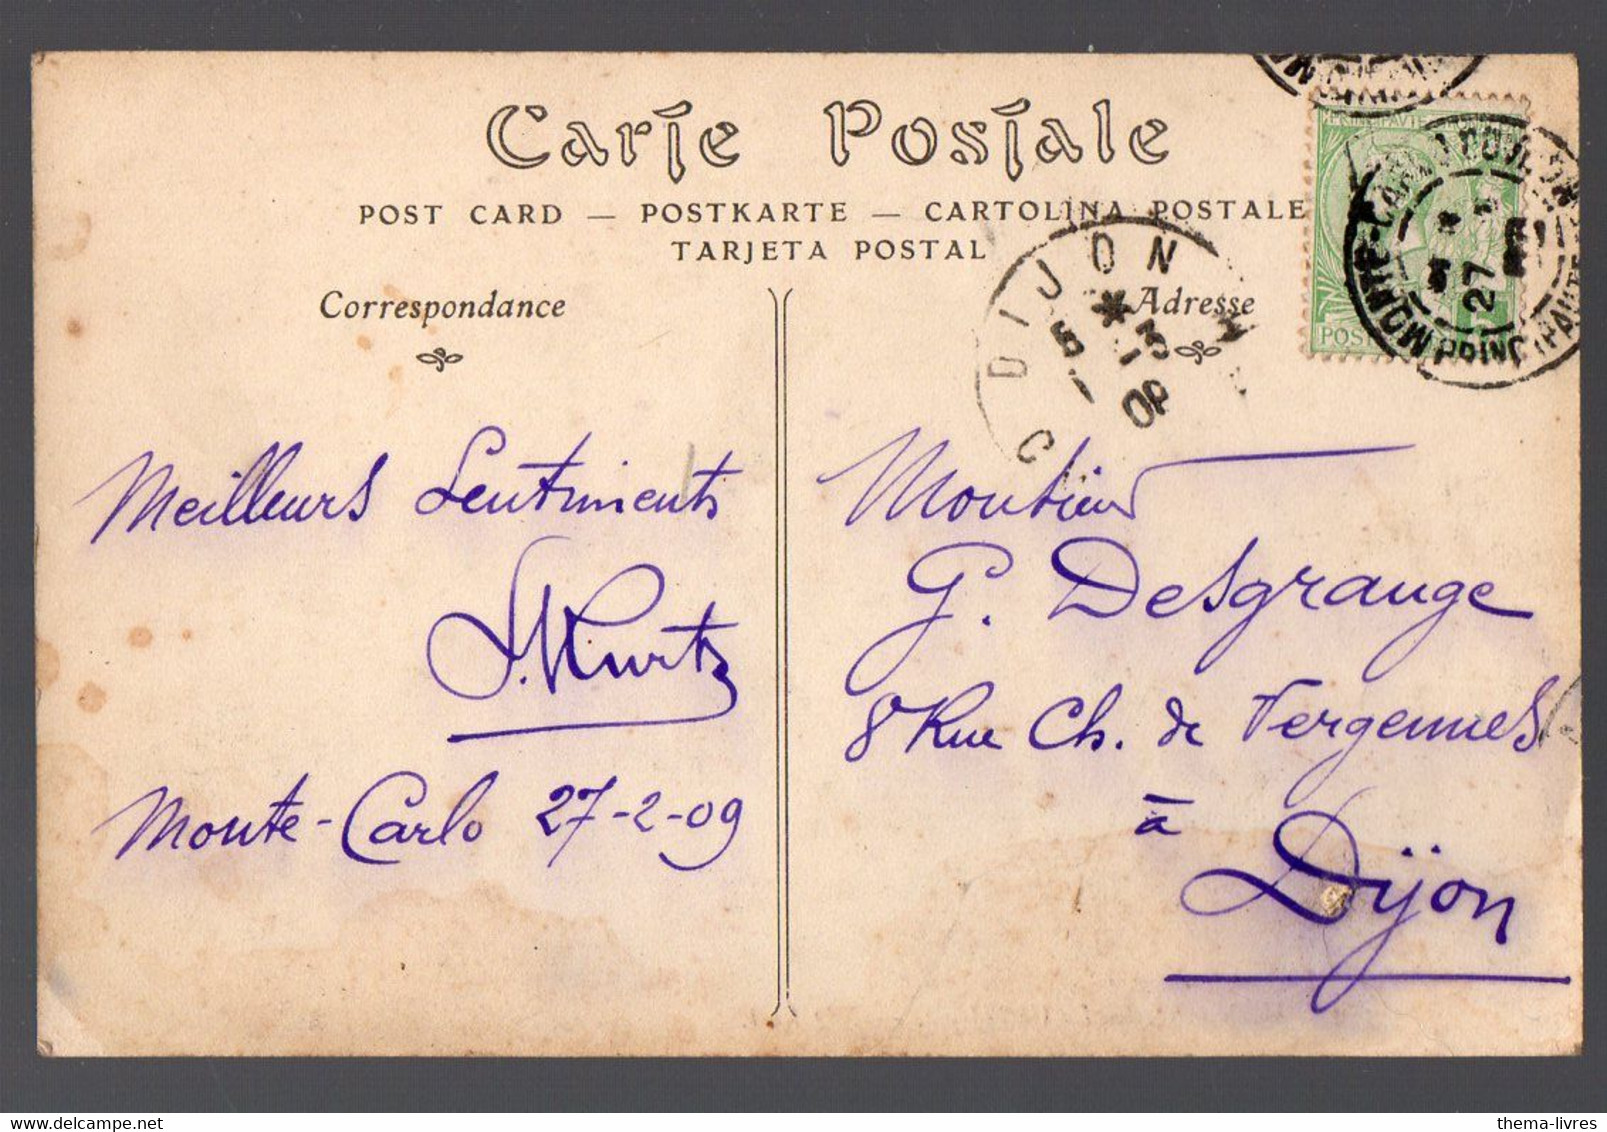 Carte Postale
POST CARD — POSTKARTE — CARTOLINA POSTALE
TARJETA POSTAL
Correspondance
Adresse
DIJON
27
MONTE-CARLO
Meilleurs Sentiments
Kurtz
Monte-Carlo 27-2-09
Monsieur
G. Desgrange
8 Rue Ch. de Vergennes
à
Dijon
thema-livres